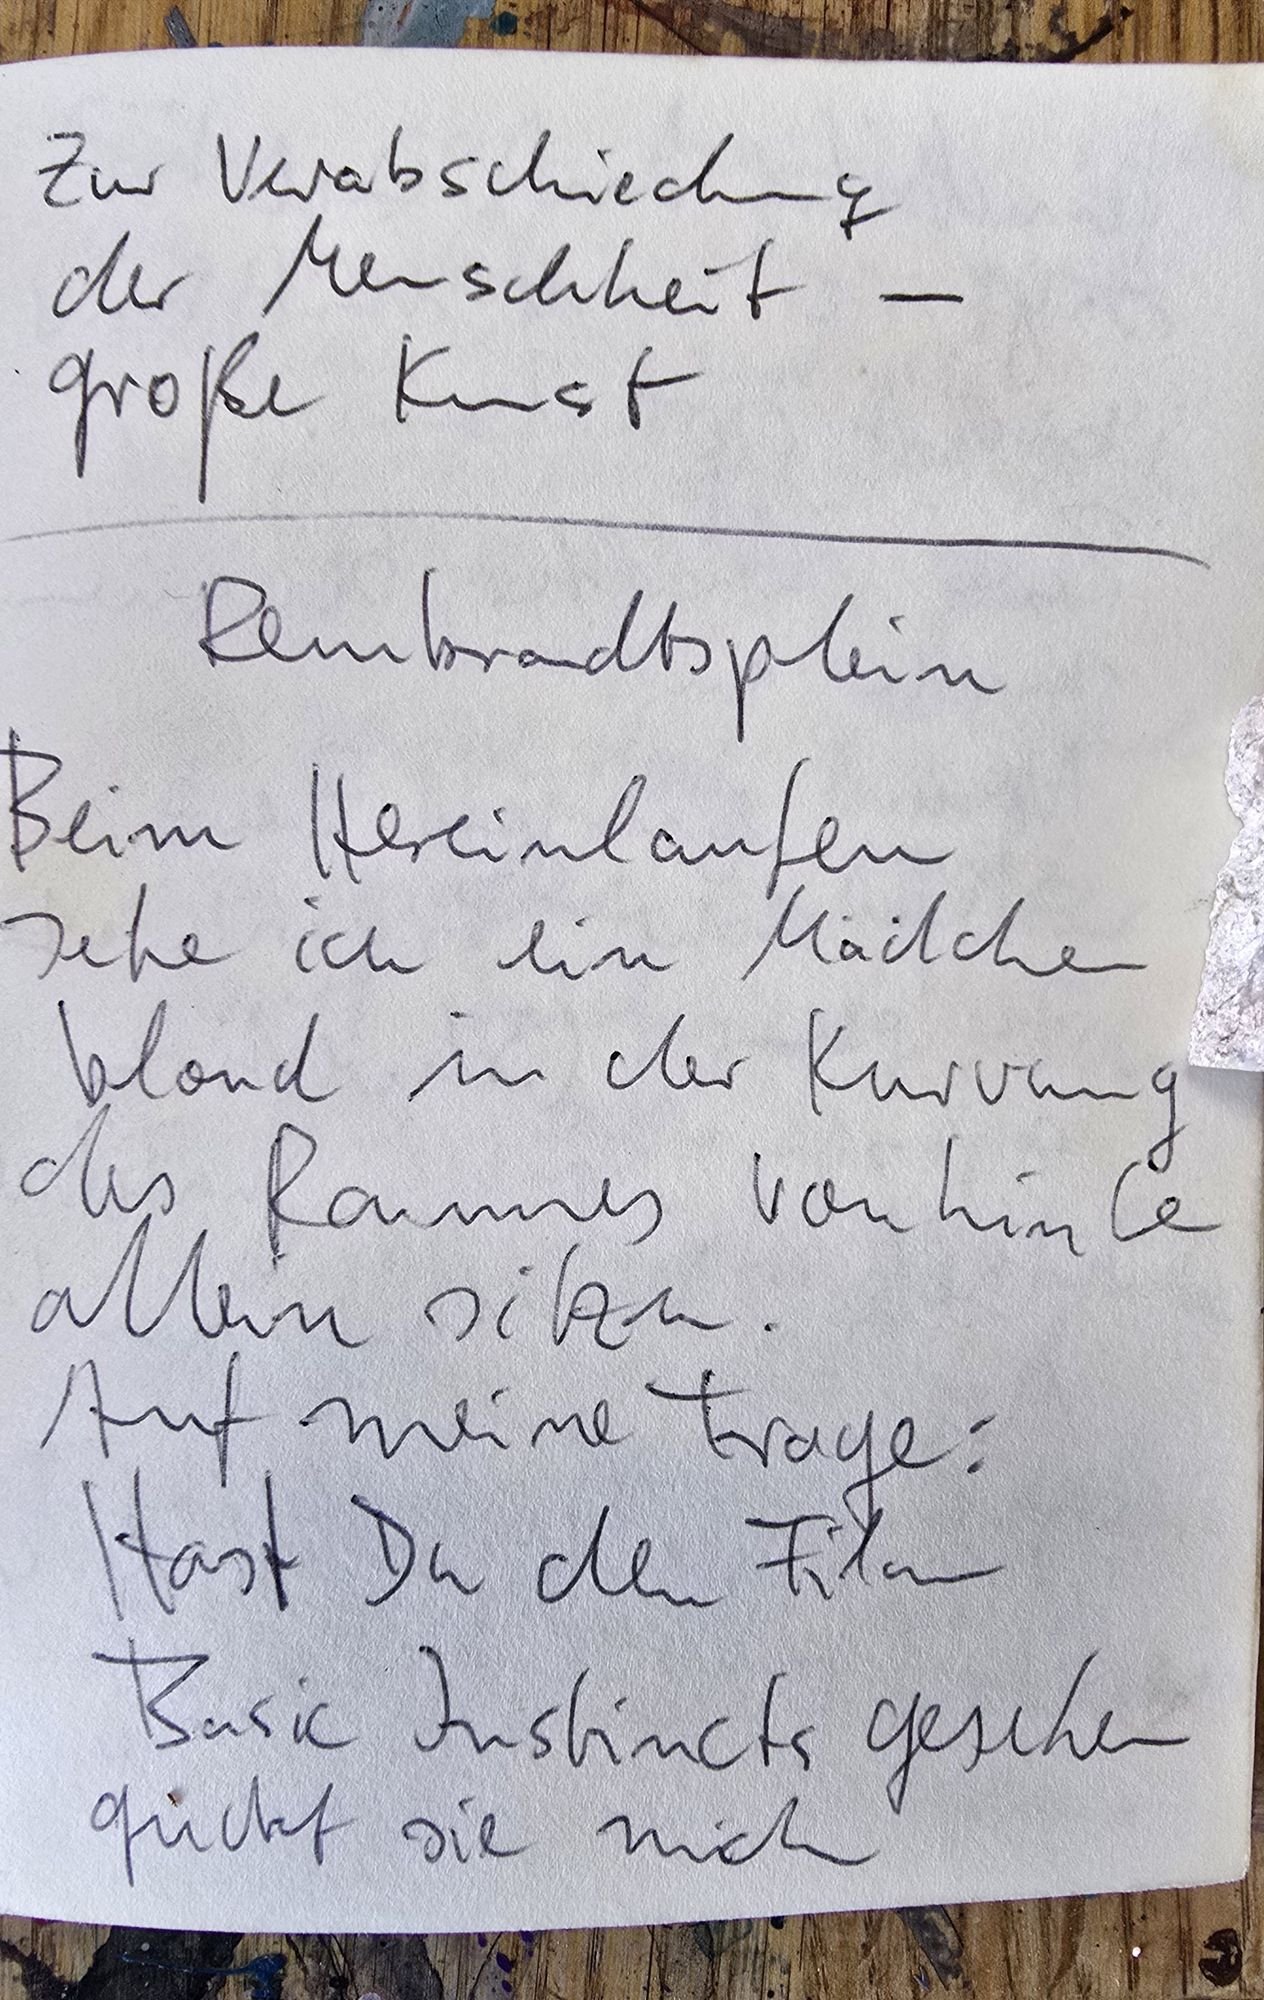 Zur Verabschiedung
der Menschheit —
große Kunst
Rembrandtsplein
Beim Hereinlaufen
sehe ich ein Mädchen
blond in der Kurvung
des Raumes von hinte
allein sitzen.
Auf meine Frage:
Hast Du den Film
Basic Instincts gesehen
guckt sie mich